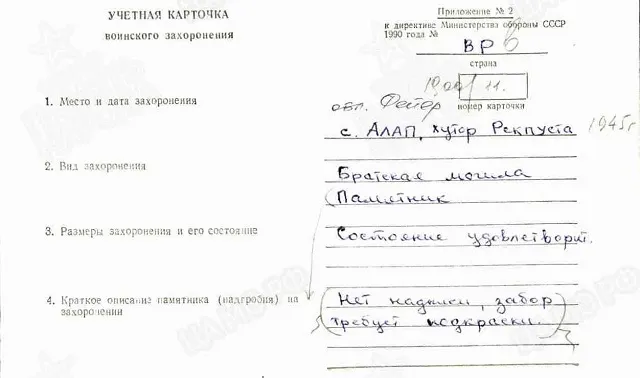 УЧЕТНАЯ КАРТОЧКА
воинского захоронения
Приложение № 2
к директиве Министерства обороны СССР
1990 года №
ВР
страна
11.
номер карточки
1. Место и дата захоронения
обл. Фейер
с. АЛАП, хутор Рекпуста 1945г
2. Вид захоронения
Братская могила
Памятник
3. Размеры захоронения и его состояние
Состояние удовлетворит.
4. Краткое описание памятника (надгробия) на
захоронении
Нет надписи, забор
требует подкраски.